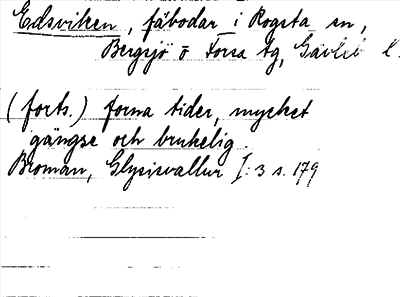 Edsviken, fäbodar i Rogsta sn,
Bergsjö o Forsa tg, Gävleb l.
(forts.) forna tider, mycket
gängse och brukelig.
Broman, Glysisvallur I: 3 s. 179